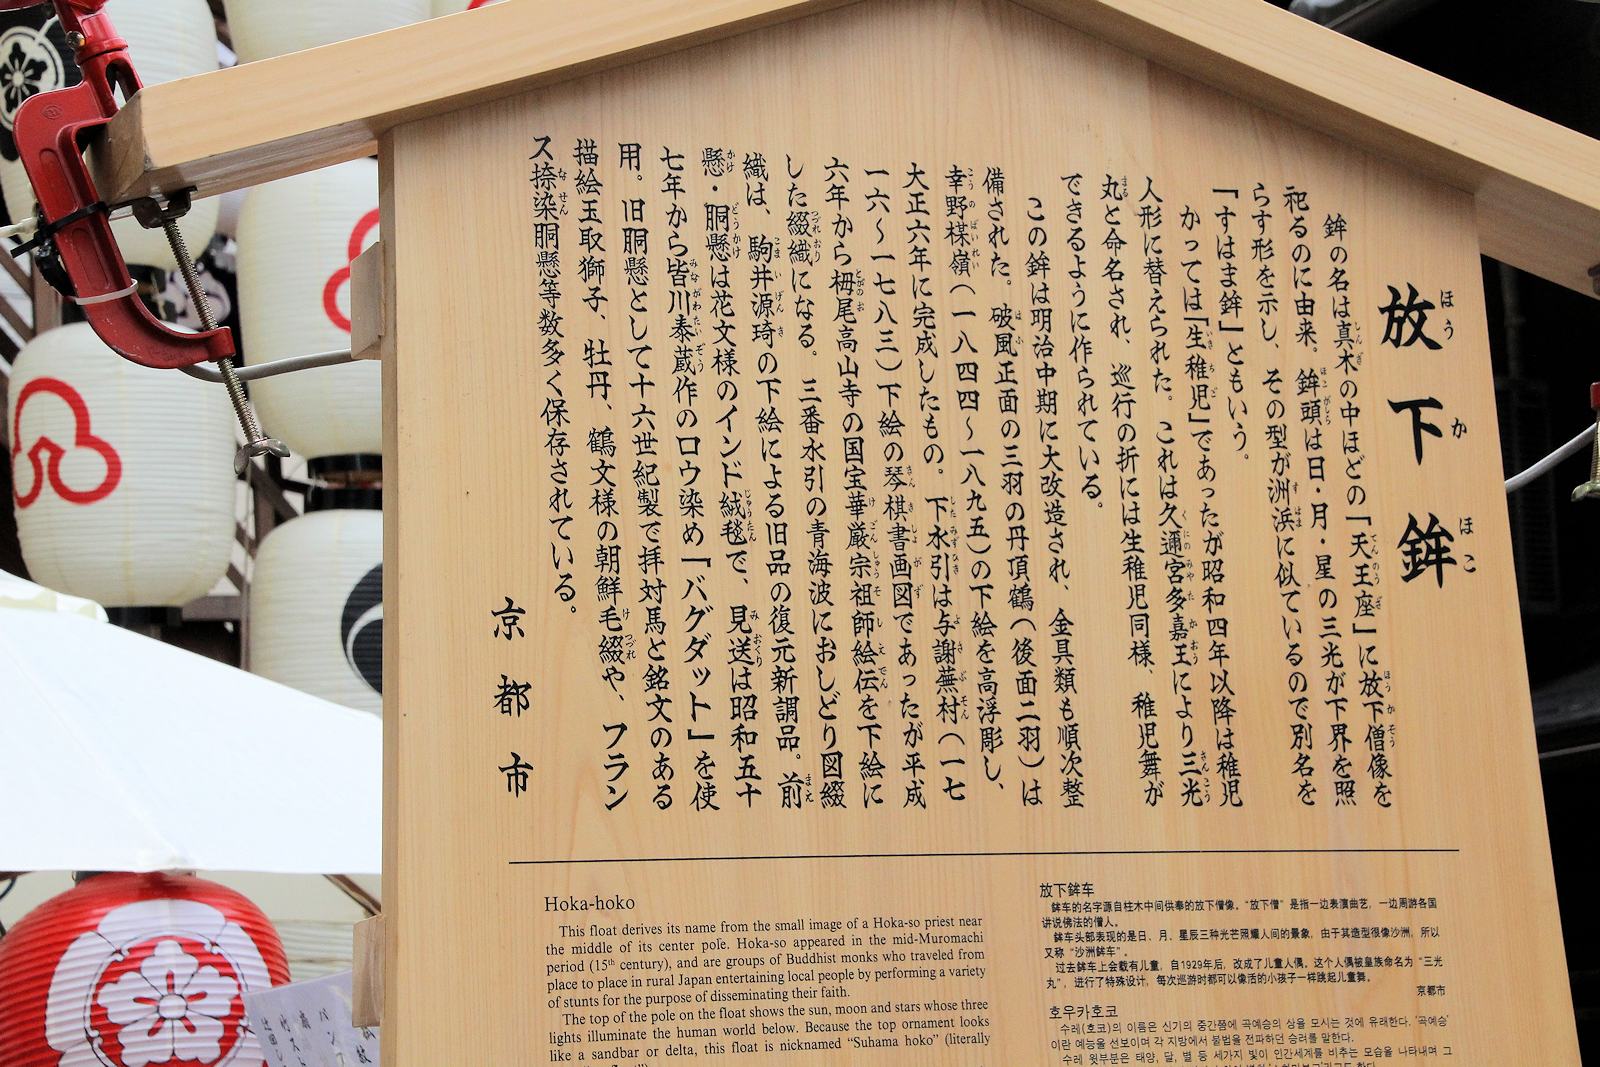 放下鉾
鉾の名は真木の中ほどの「天王座」に放下僧像を
祀るのに由来。鉾頭は日・月・星の三光が下界を照
らす形を示し、その型が洲浜に似ているので別名を
「すはま鉾」ともいう。
かつては「生稚児」であったが昭和四年以降は稚児
人形に替えられた。これは久邇宮多嘉王により三光
丸と命名され、巡行の折には生稚児同様、稚児舞が
できるように作られている。
この鉾は明治中期に大改造され、金具類も順次整
備された。破風正面の三羽の丹頂鶴(後面二羽)は
幸野楳嶺(一八四四〜一八九五)の下絵を高浮彫し、
大正六年に完成したもの。下水引は与謝蕪村(一七
一六〜一七八三)下絵の琴棋書画図であったが平成
六年から栂尾高山寺の国宝華厳宗祖師絵伝を下絵に
した綴織になる。三番水引の青海波におしどり図綴
織は、駒井源琦の下絵による旧品の復元新調品。前
懸・胴懸は花文様のインド絨毯で、見送は昭和五十
七年から皆川泰蔵作のロウ染め「バグダット」を使
用。旧胴懸として十六世紀製で拝対馬と銘文のある
描絵玉取獅子、牡丹、鶴文様の朝鮮毛綴や、フラン
ス捺染胴懸等数多く保存されている。
京都市
Hoka-hoko
This float derives its name from the small image of a Hoka-so priest near
the middle of its center pole. Hoka-so appeared in the mid-Muromachi
period (15th century), and are groups of Buddhist monks who traveled from
place to place in rural Japan entertaining local people by performing a variety
of stunts for the purpose of disseminating their faith.
The top of the pole on the float shows the sun, moon and stars whose three
lights illuminate the human world below. Because the top ornament looks
like a sandbar or delta, this float is nicknamed “Suhama hoko” (literally
放下鉾车
鉾车的名字源自柱木中间供奉的放下僧像。“放下僧”是指一边表演曲艺，一边周游各国
讲说佛法的僧人。
鉾车头部表现的是日、月、星辰三种光芒照耀人间的景象，由于其造型很像沙洲，所以
又称“沙洲鉾车”。
过去鉾车上会载有儿童，自1929年后，改成了儿童人偶。这个人偶被皇族命名为“三光
丸”，进行了特殊设计，每次巡游时都可以像活的小孩子一样跳起儿童舞。
京都市
호우카호코
수레(호코)의 이름은 신기의 중간쯤에 곡예승의 상을 모시는 것에 유래한다. '곡예승'
이란 예능을 선보이며 각 지방에서 불법을 전파하던 승려를 말한다.
수레 윗부분은 태양, 달, 별 등 세가지 빛이 인간세계를 비추는 모습을 나타내며 그